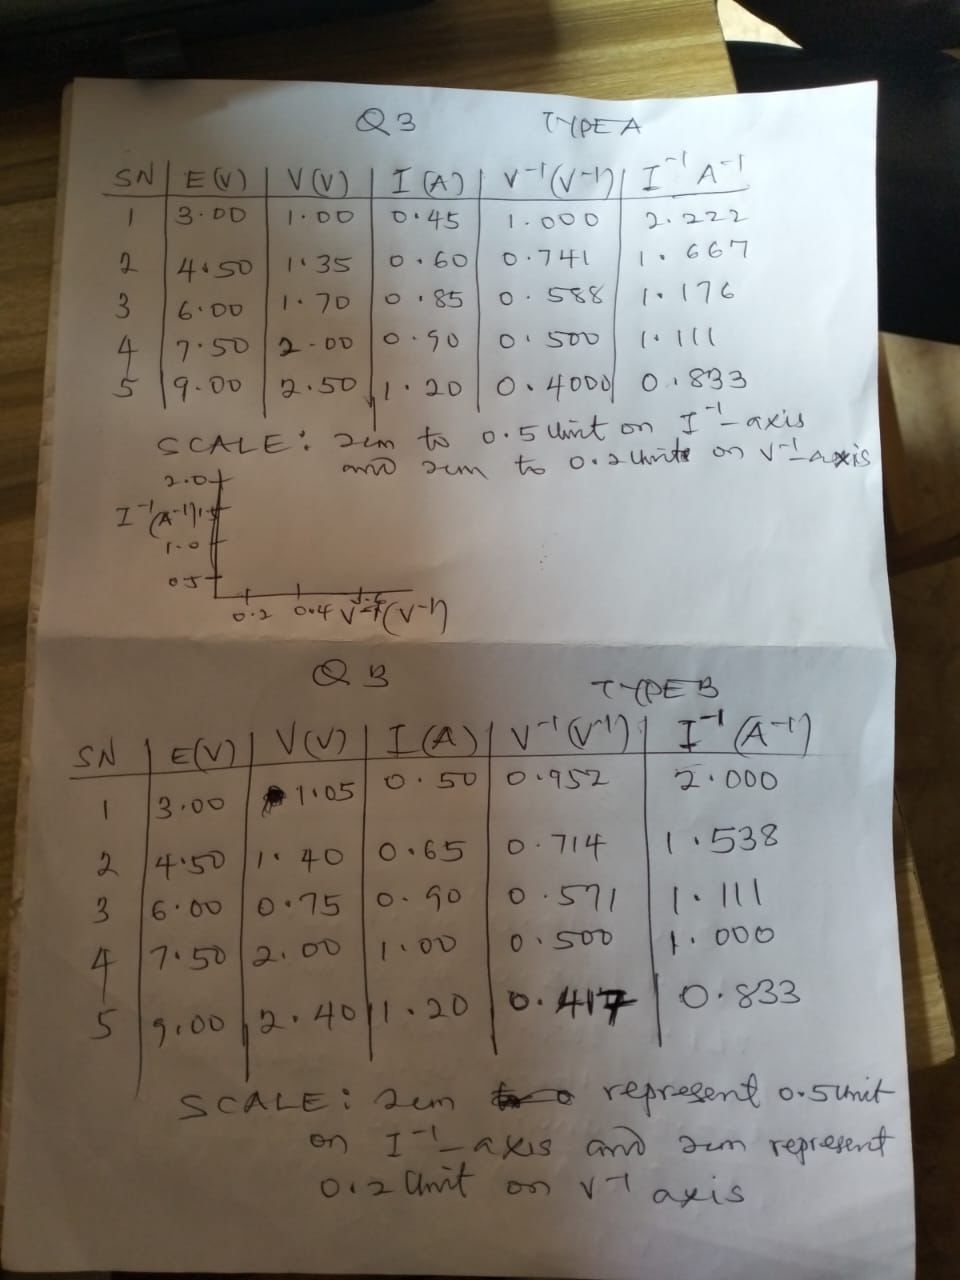 Q3 TYPE A
SN E(V) V(V) I(A) V⁻¹(V⁻¹) I⁻¹ A⁻¹
1 3.00 1.00 0.45 1.000 2.222
2 4.50 1.35 0.60 0.741 1.667
3 6.00 1.70 0.85 0.588 1.176
4 7.50 2.00 0.90 0.500 1.111
5 9.00 2.50 1.20 0.4000 0.833
SCALE: 2cm to 0.5 Unit on I⁻¹-axis
and 2cm to 0.2 Units on V⁻¹-axis
2.0
I⁻¹(A⁻¹)
1.0
0.5
0.2 0.4 V⁻¹(V⁻¹)
Q3 TYPE B
SN E(V) V(V) I(A) V⁻¹(V⁻¹) I⁻¹(A⁻¹)
1 3.00 1.05 0.50 0.952 2.000
2 4.50 1.40 0.65 0.714 1.538
3 6.00 0.75 0.90 0.571 1.111
4 7.50 2.00 1.00 0.500 1.000
5 9.00 2.40 1.20 0.417 0.833
SCALE: 2cm represent 0.5 Unit
on I⁻¹-axis and 2cm represent
0.2 Unit on V⁻¹ axis